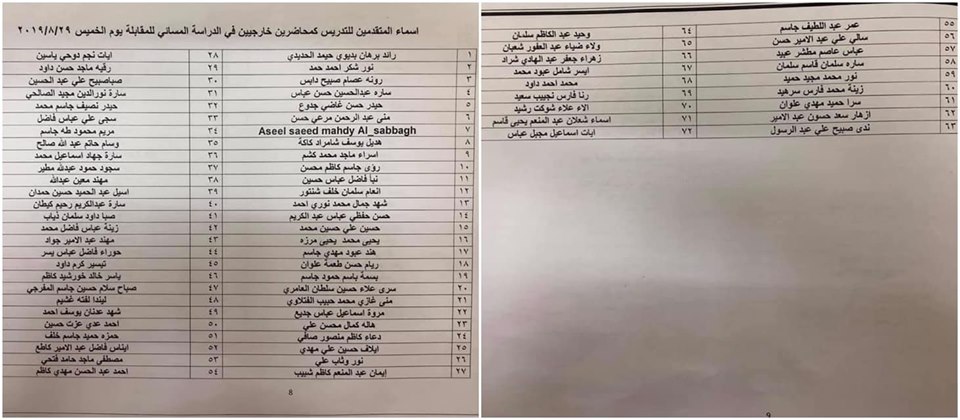 اسماء المتقدمين للتدريس كمحاضرين خارجيين في الدراسة المسائي للمقابلة يوم الخميس ٢٠١٩/٨/٢٩
١ رائد برهان بديوي حيمد الحديدي ٢٨ ايات نجم دوحي ياسين
٢ نور شكر احمد حمد ٢٩ رقيه ماجد حسن داود
٣ رونه عصام صبيح دابس ٣٠ صباصبيح علي عبد الحسين
٤ ساره عبدالحسين حسن عباس ٣١ سارة نورالدين مجيد الصالحي
٥ حيدر حسن غاضي جدوع ٣٢ حيدر نصيف جاسم محمد
٦ منى عبد الرحمن مرعي حسن ٣٣ سجى علي عباس فاضل
٧ Aseel saeed mahdy Al_sabbagh ٣٤ مريم محمود طه جاسم
٨ هديل يوسف شامراد كاكة ٣٥ وسام حاتم عبد الله صالح
٩ اسراء ماجد محمد كشم ٣٦ سارة جهاد اسماعيل محمد
١٠ رؤى جاسم كاظم محسن ٣٧ سجود حمود عبدلله مطير
١١ نبأ فاضل عباس حسين ٣٨ مهند معين عبدالله
١٢ انعام سلمان خلف شنتور ٣٩ اسيل عبد الحميد حسين حمدان
١٣ شهد جمال محمد نوري احمد ٤٠ سارة عبدالكريم رحيم كيطان
١٤ حسن حفظي عباس عبد الكريم ٤١ صبا داود سلمان ذياب
١٥ حسين علي حسين محمد ٤٢ زينة عباس فاضل محمد
١٦ يحيى محمد يحيى مرزه ٤٣ مهند عبد الامير جواد
١٧ هند عبود مهدي جاسم ٤٤ حوراء فاضل عباس يسر
١٨ ريام حسن طعمة علوان ٤٥ تيسير كرم داود
١٩ بسمة باسم حمود جاسم ٤٦ ياسر خالد خورشيد كاظم
٢٠ سرى علاء حسين سلطان العامري ٤٧ صباح سلام حسين جاسم المفرجي
٢١ منى غازي محمد حبيب الفتلاوي ٤٨ ليندا لفته غشيم
٢٢ مروة اسماعيل عباس جديع ٤٩ شهد عدنان يوسف احمد
٢٣ هاله كمال محسن علي ٥٠ احمد عدي عزت حسين
٢٤ دعاء كاظم منصور صافي ٥١ حمزه حميد جاسم خلف
٢٥ ايلاف حسين علي مهدي ٥٢ ايناس فاضل عبد الامير كاطع
٢٦ نور وثاب علي ٥٣ مصطفى ماجد حامد فتحي
٢٧ إيمان عبد المنعم كاظم شبيب ٥٤ احمد عبد الحسن مهدي كاظم
8
٥٥ عمر عبد اللطيف جاسم ٦٤ وحيد عبد الكاظم سلمان
٥٦ سالي علي عبد الامير حسن ٦٥ ولاء ضياء عبد الغفور شعبان
٥٧ عباس عاصم مطشر عبيد ٦٦ زهراء جعفر عبد الهادي شراد
٥٨ ساره سلمان قاسم سلمان ٦٧ ايسر شامل عبود محمد
٥٩ نور محمد مجيد حميد ٦٨ محمد احمد داود
٦٠ زينة محمد فارس سرهيد ٦٩ رنا فارس نجيب سعيد
٦١ سرا حميد مهدي علوان ٧٠ الاء علاء شوكت رشيد
٦٢ ازهار سعد حسون عبد الامير ٧١ اسماء شعلان عبد المنعم يحيى قاسم
٦٣ ندى صبيح علي عبد الرسول ٧٢ ايات اسماعيل مجبل عباس
9